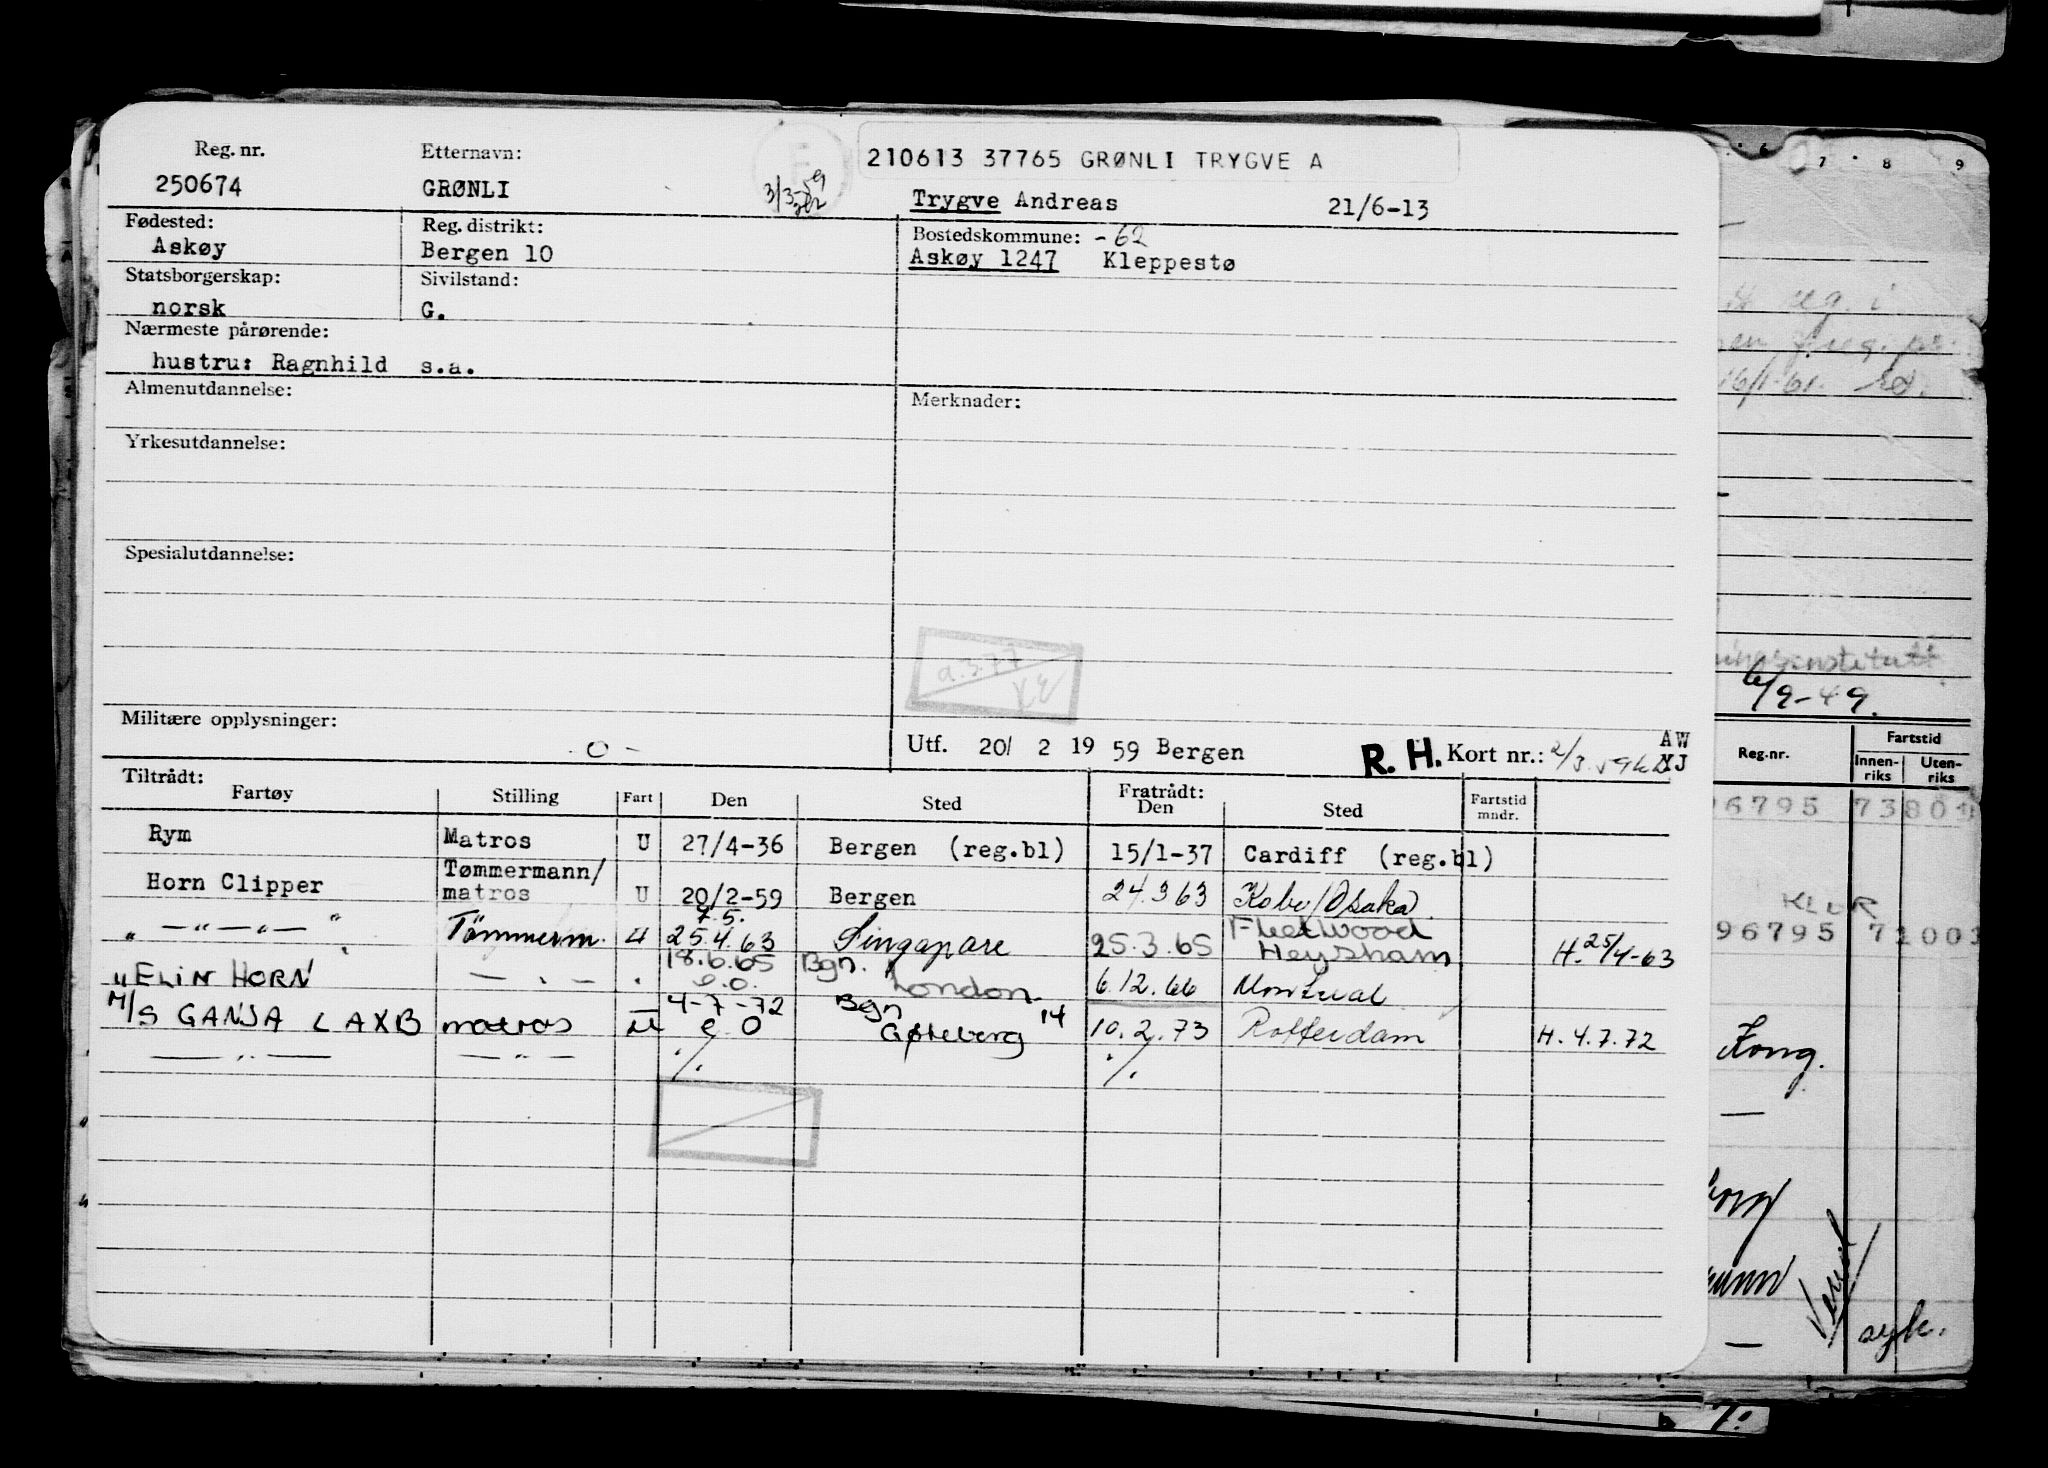 Reg. nr. Etternavn: 210613 37765 GRØNLI TRYGVE A
250674 GRØNLI Trygve Andreas 21/6-13
Fødested: Reg. distrikt: Bostedskommune: -62
Askøy Bergen 10 Askøy 1247 Kleppestø
Statsborgerskap: Sivilstand:
norsk G.
Nærmeste pårørende:
hustru: Ragnhild s.a.
Almenutdannelse: Merknader:
Yrkesutdannelse:
Spesialutdannelse:
a.377
Militære opplysninger:
-0- Utf. 20/ 2 19 59 Bergen R. H. Kort nr.: AW
Tiltrådt: Fratrådt:
Fartøy Stilling Fart Den Sted Den Sted Fartstid mndr.
Rym Matros U 27/4-36 Bergen (reg.bl) 15/1-37 Cardiff (reg.bl)
Horn Clipper Tømmermann/ matros U 20/2-59 Bergen 24.363 Kobe/Osaka.
7.5. Fleetwood
„ — " — " — " Tömmerm. U 25.4.63 Singapore 25.3.65 Heysham H. 25/4-63
18.6.65 Bgn.
" ELIN HORN — " — e.o. London 6.12.66 Montreal
4-7-72 Bgn
M/S GANJA LAXB matros U e O Gøteborg 14 10.2.73 Rotterdam H. 4.7.72
— " — — " — ./. ./.
6 7 8 9
reg. i
16/1-61.
6/9-49.
Reg.nr. Fartstid
Innen-riks Uten-riks
96795
96795
Kong.
syk.